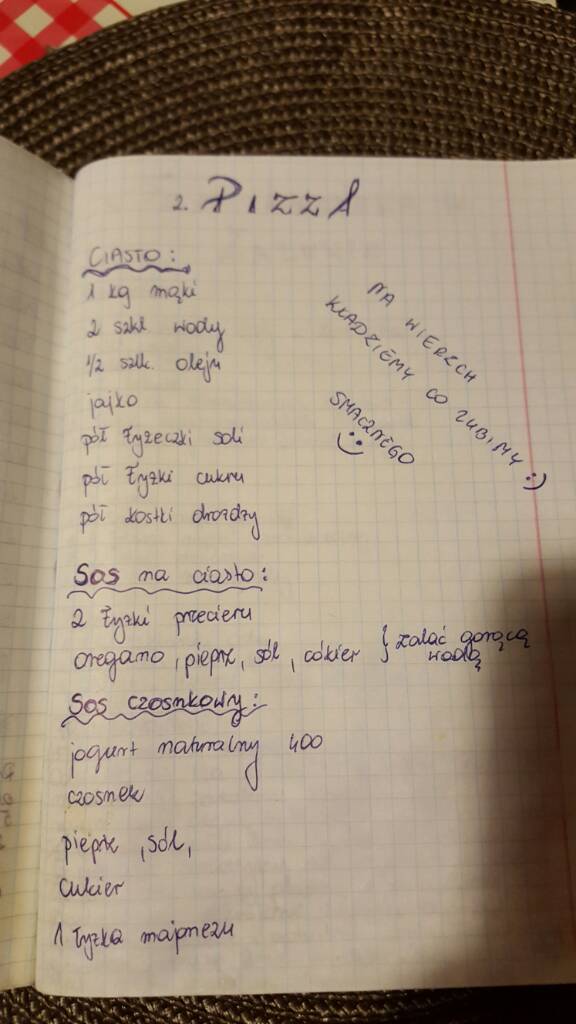 2. PIZZA
CIASTO:
1 kg mąki
2 szkl wody
1/2 szlk. oleju
jajko
pół łyżeczki soli
pół łyżki cukru
pół kostki drożdży
NA WIERZCH
KŁADZIEMY CO LUBIMY :)
SMACZNEGO
:)
Sos na ciasto:
2 łyżki przecieru
oregano, pieprz, sól, cókier } zalać gorącą
wodą
Sos czosnkowy:
jogurt naturalny 400
czosnek
pieprz, sól,
cukier
1 łyżka majonezu